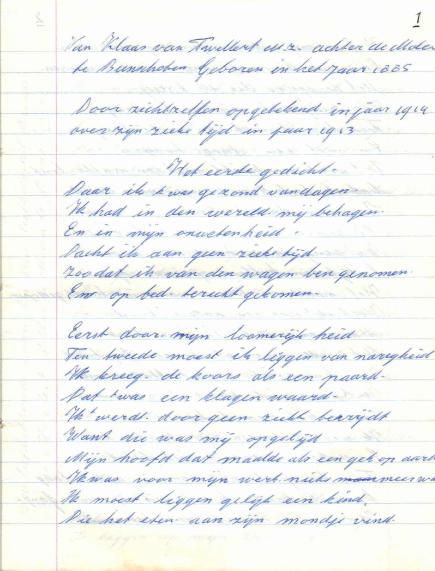 1
Van Klaas van Twillert Mz. achter de Molen
te Bunschoten Geboren in het Jaar 1885
Door zichtzelfen opgetekend in jaar 1914
over zijn zieke tijd in jaar 1913
Het eerste gedicht.
Daar ik was gezond van dagen.
Ik had in den wereld mij behagen.
En in mijn onwetenheid.
Dacht ik aan geen zieke tijd.
Zoodat ik van den wagen ben genomen
En op bed terecht gekomen.
Eerst door mijn loomerijk heid
Ten tweede moest ik liggen van narigheid
Ik kreeg de koors als een paard.
Dat twas een klagen waard.
Ik werdt door geen zicht bevrijdt
Want die was mij opgelijd
Mijn hoofd dat maalde als een gek op aard
Ik was voor mijn werk niets meer wa
Ik moest liggen gelijk een kind.
Die het eten aan zijn mondje vind.